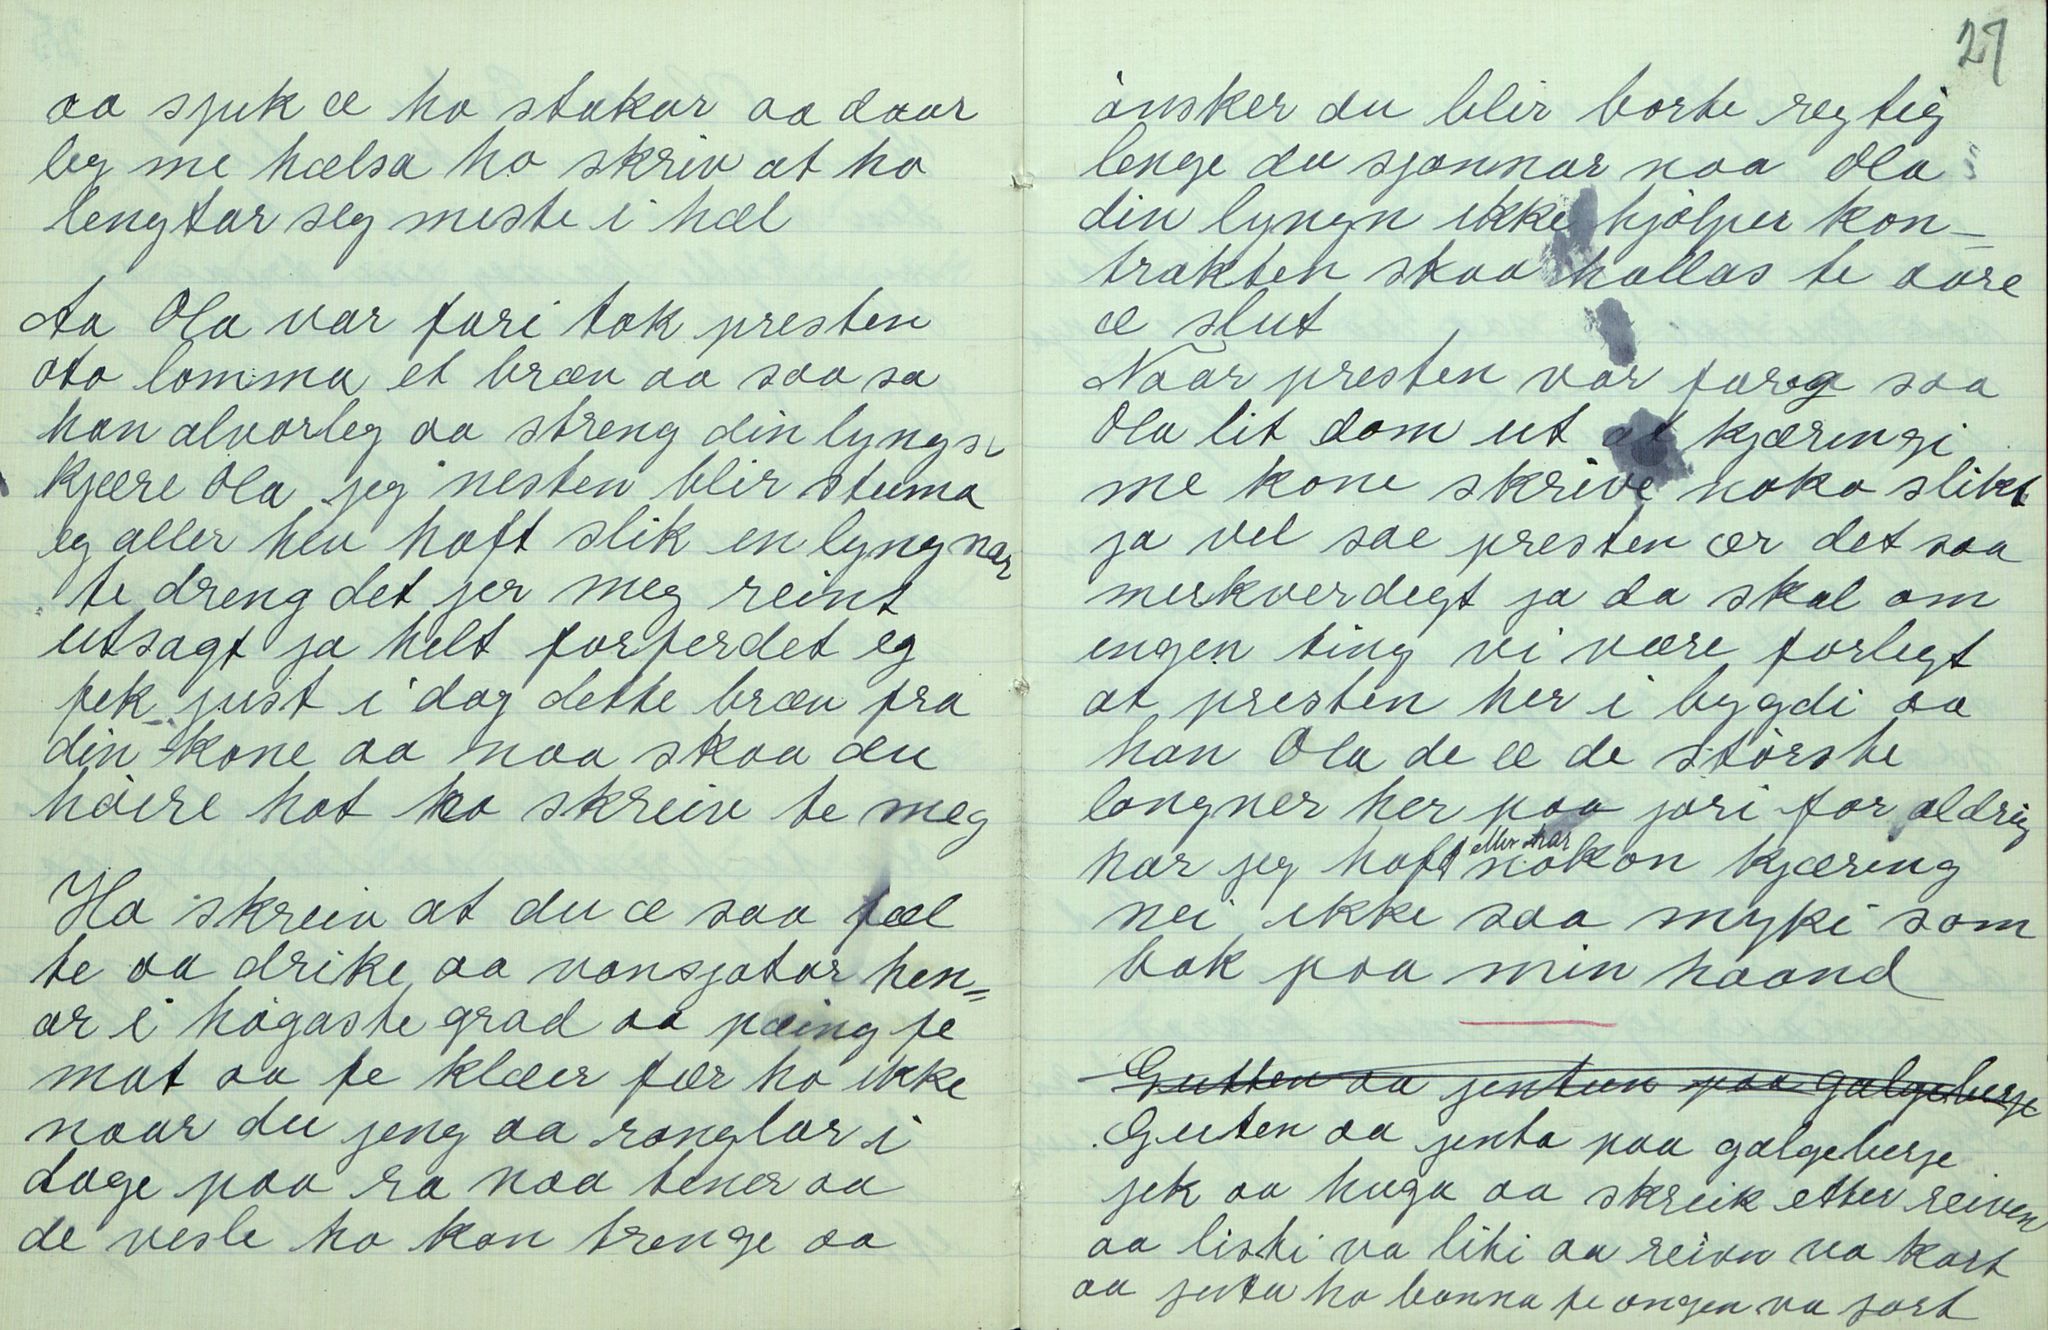 aa sjuk æ ho stakar aa daar
leg me hælsa ho skriv at ho
lengtar seg meste i hæl
Aa Ola var fari tok presten
oto lomma et bræv aa saa sa
han alvorleg aa streng din lyngs
kjære Ola jeg nesten blir stuma
eg aller hev haft slik en lyngnar
te dreng det jer meg reint
utsagt ja helt forferdet eg
fek just i dag dette bræv fra
din kone aa naa skaa du
høire hot ho skreiv te meg
Ho skreiv at du æ saa fæl
te aa drike aa vansjøtar hen=
ar i høgaste grad aa pæing te
mat aa te klæer fær ho ikke
naar du jeng aa ranglar i
dage paa ra naa tener aa
de vesle ho kan trenge aa
27
ønsker du blir borte regtig
lenge du sjønnar naa Ola
din lyngn ikke hjølper kon-
trakten skaa hallas te aare
æ slut
Naar presten var færog saa
Ola lit dom ut at kjæringi
me kone skrive noko slikt
ja vel sae presten ær det saa
merkverdegt ja da skal om
ingen ting vi være forlegt
at presten her i bygdi aa
han Ola de æ de største
longner her paa jøri for aldrig
har jeg haft eller har nokon kjæring
nei ikke saa myki som
bak paa min haand
Gutten aa jentun paa galgeberje
Guten aa jenta paa galgeberje
jek aa huga aa skreik etter reiven
aa listi va liti aa reivn va kort
aa jenta ho banna te ongen va jort